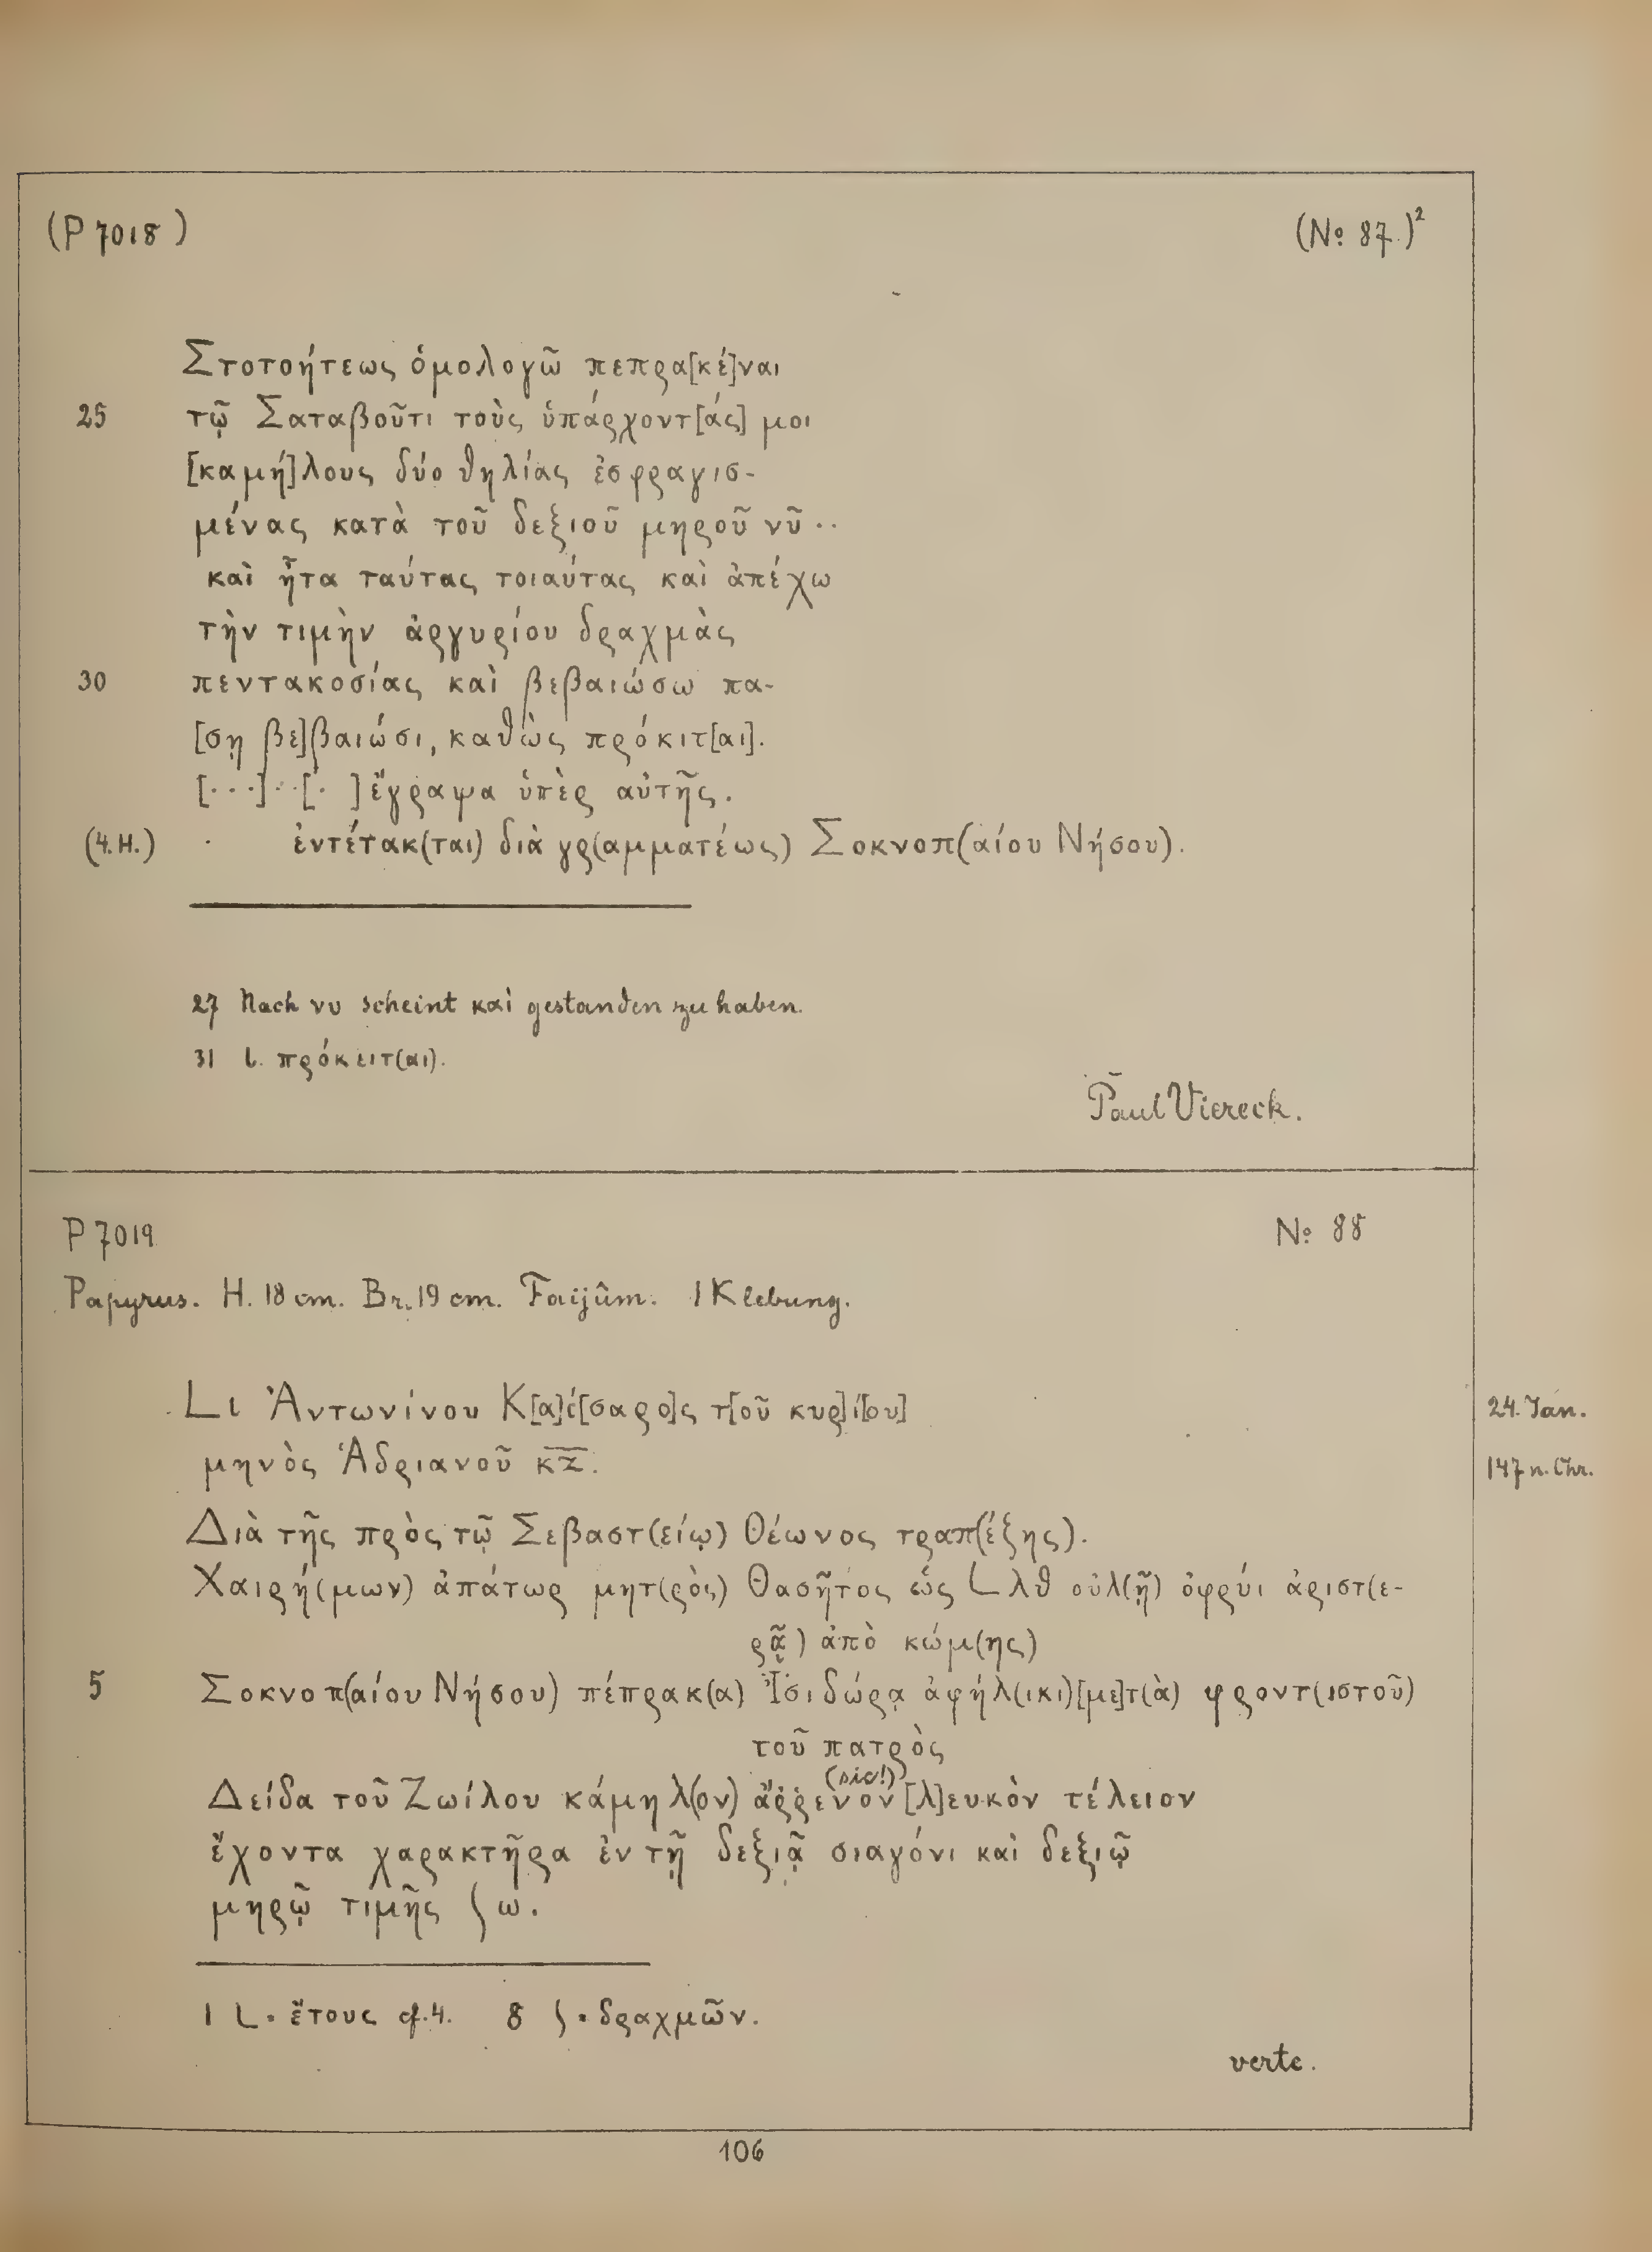 (P 7018)
(No 87.)²
Στοτοήτεως ὁμολογῶ πεπρα[κέ]ναι
25 τῷ Σαταβοῦτι τοὺς ὑπάρχοντ[άς] μοι
[καμή]λους δύο θηλίας ἐσφραγισ-
μένας κατὰ τοῦ δεξιοῦ μηροῦ νῦ··
καὶ ἦτα ταύτας τοιαύτας καὶ ἀπέχω
τὴν τιμὴν ἀργυρίου δραχμὰς
30 πεντακοσίας καὶ βεβαιώσω πα-
[σῃ βε]βαιώσι, καθὼς πρόκιτ[αι].
[···]··[· ] ἔγραψα ὑπὲρ αὐτῆς.
(4.H.) ἐντέτακ(ται) διὰ γρ(αμματέως) Σοκνοπ(αίου Νήσου).
27 Nach νυ scheint καὶ gestanden zu haben.
31 l. πρόκειτ(αι).
Paul Viereck.
P 7019
No 88
Papyrus. H. 18 cm. Br. 19 cm. Faijûm. 1 Klebung.
L ι Ἀντωνίνου Κ[α]ί[σαρο]ς τ[οῦ κυρ]ί[ου]
24. Jan.
μηνὸς Ἁδριανοῦ κζ.
147 n. Chr.
Διὰ τῆς πρὸς τῷ Σεβαστ(είῳ) Θέωνος τραπ(έζης).
Χαιρή(μων) ἀπάτωρ μητ(ρὸς) Θασῆτος ὡς L λθ οὐλ(ῇ) ὀφρύι ἀριστ(ε-
ρᾷ) ἀπὸ κώμ(ης)
5 Σοκνοπ(αίου Νήσου) πέπρακ(α) Ἰσιδώρᾳ ἀφήλ(ικι) [με]τ(ὰ) φροντ(ιστοῦ)
τοῦ πατρὸς
(sic!)
Δείδα τοῦ Ζωίλου κάμηλ(ον) ἄῤῥενον [λ]ευκὸν τέλειον
ἔχοντα χαρακτῆρα ἐν τῇ δεξιᾷ σιαγόνι καὶ δεξιῷ
μηρῷ τιμῆς ∫ ω.
1 L = ἔτους cf. 4. 8 ∫ = δραχμῶν.
verte.
106